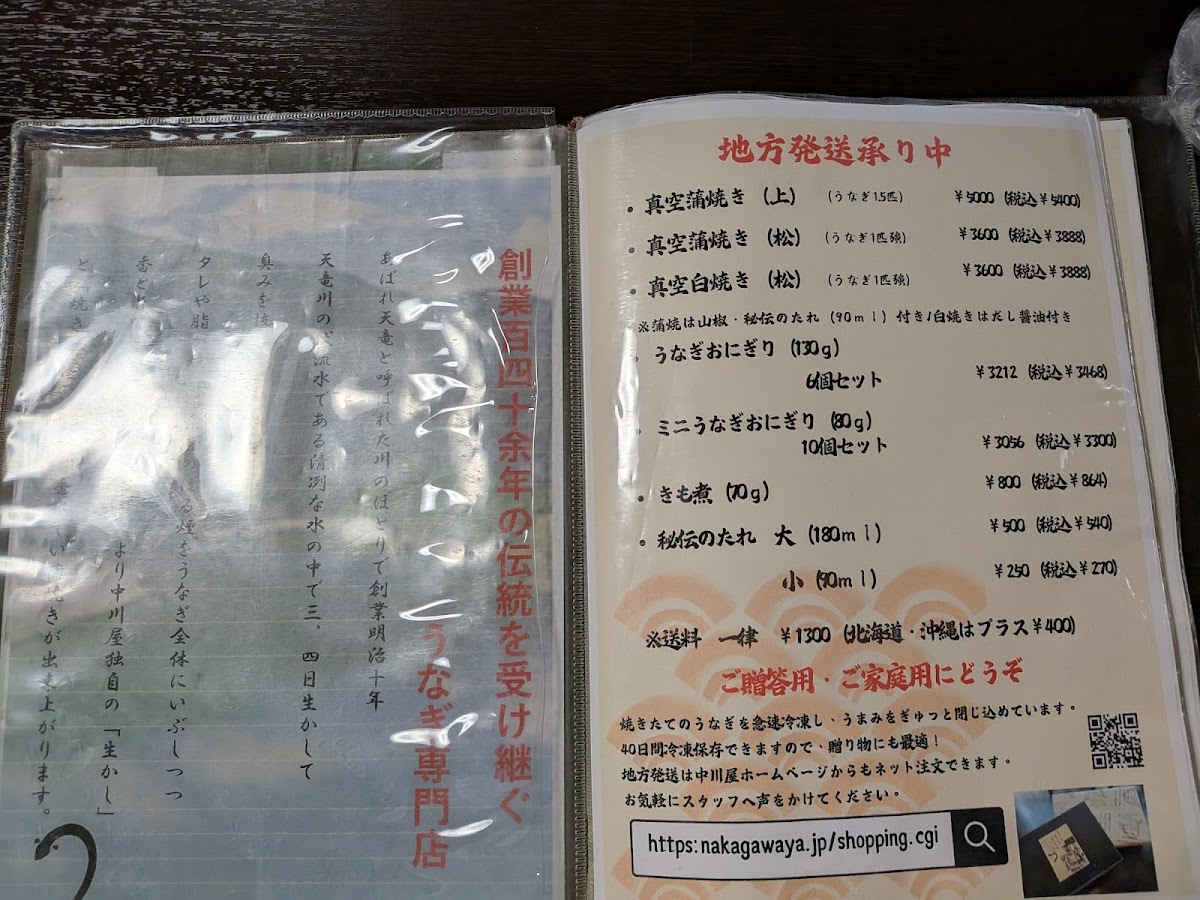 創業百四十余年の伝統を受け継ぐ
うなぎ専門店
あばれ天竜と呼ばれた川のほとりで創業明治十年
天竜川の 流水である清冽な水の中で三、四日生かして
臭みを
タレや脂 る煙をうなぎ全体にいぶしつつ
香と より中川屋独自の「生かし」
と 焼き い 焼きが出来上がります。
地方発送承り中
• 真空蒲焼き (上) (うなぎ1.5匹) ¥5000 (税込¥5400)
• 真空蒲焼き (松) (うなぎ1匹強) ¥3600 (税込¥3888)
• 真空白焼き (松) (うなぎ1匹強) ¥3600 (税込¥3888)
※蒲焼は山椒・秘伝のたれ (90ml) 付き/白焼きはだし醤油付き
• うなぎおにぎり (130g)
6個セット ¥3212 (税込¥3468)
• ミニうなぎおにぎり (80g)
10個セット ¥3056 (税込¥3300)
• きも煮 (70g) ¥800 (税込¥864)
• 秘伝のたれ 大 (180ml) ¥500 (税込¥540)
小 (90ml) ¥250 (税込¥270)
※送料 一律 ¥1300 (北海道・沖縄はプラス¥400)
ご贈答用・ご家庭用にどうぞ
焼きたてのうなぎを急速冷凍し、うまみをぎゅっと閉じ込めています。
40日間冷凍保存できますので、贈り物にも最適!
地方発送は中川屋ホームページからもネット注文できます。
お気軽にスタッフへ声をかけてください。
https:nakagawaya.jp/shopping.cgi